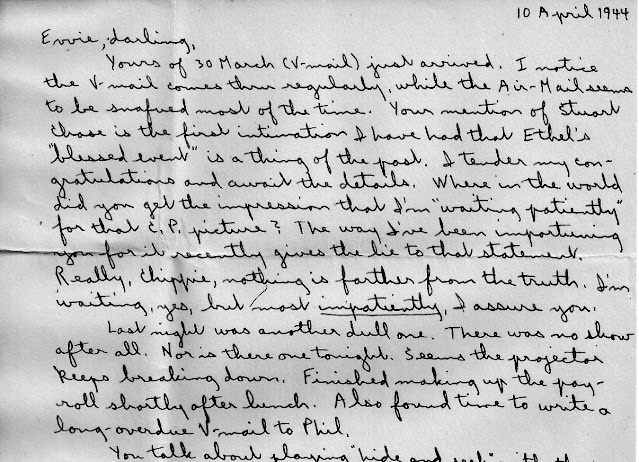 10 April 1944
Evvie, darling,
Yours of 30 March (V-mail) just arrived. I notice
the V-mail comes thru regularly, while the Air-Mail seems
to be snafued most of the time. Your mention of Stuart
Chase is the first intimation I have had that Ethel's
"blessed event" is a thing of the past. I tender my con-
gratulations and await the details. Where in the world
did you get the impression that I'm "waiting patiently"
for that C.P. picture? The way I've been importuning
you for it recently gives the lie to that statement.
Really, Chippie, nothing is farther from the truth. I'm
waiting, yes, but most impatiently, I assure you.
Last night was another dull one. There was no show
after all. Nor is there one tonight. Seems the projector
keeps breaking down. Finished making up the pay-
roll shortly after lunch. Also found time to write a
long-overdue V-mail to Phil.
You talk about playing "hide and seek" with the